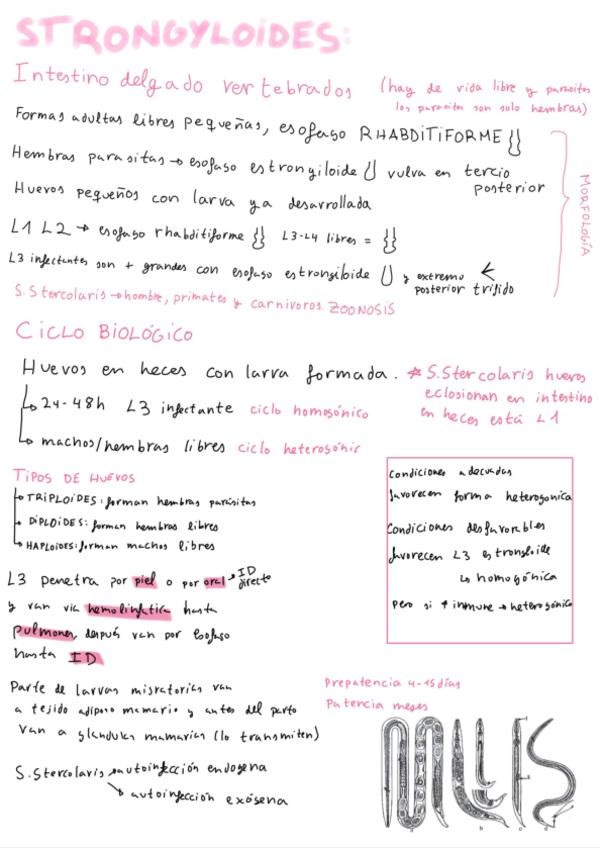 STRONGYLOIDES:
Intestino delgado vertebrados
(hay de vida libre y parasitos
los parasitos son solo hembras)
Formas adultas libres pequeñas, esofago RHABDITIFORME
Hembras parasitas → esofago estrongiloide vulva en tercio
posterior
Huevos pequeños con larva ya desarrollada
L1 L2 → esofago rhabditiforme L3-L4 libres =
L3 infectantes son + grandes con esofago estrongiloide y extremo
posterior trifido
MORFOLOGÍA
S. Stercolaris → hombre, primates y carnivoros. ZOONOSIS
CICLO BIOLÓGICO
Huevos en heces con larva formada.
* S. Stercolaris huevos
eclosionan en intestino
en heces está L1
24-48h L3 infectante ciclo homogónico
machos/hembras libres ciclo heterogónic
TIPOS DE HUEVOS
TRIPLOIDES: forman hembras parásitas
DIPLOIDES: forman hembras libres
HAPLOIDES: forman machos libres
Condiciones adecuadas
favorecen forma heterogonica
Condiciones desfavorables
favorecen L3 estrongiloide
↳ homogónica
pero si ↑ inmune → heterogónica
L3 penetra por piel o por oral → ID directo
y van via hemolinfatica hasta
pulmones, después van por esofago
hasta ID
Parte de larvas migratorias van
a tejido adiposo mamario y antes del parto
van a glandulas mamarias (lo transmiten)
Prepatencia 4-15 días
Patencia meses
S. Stercolaris → autoinfección endogena
→ autoinfección exógena
a b c d